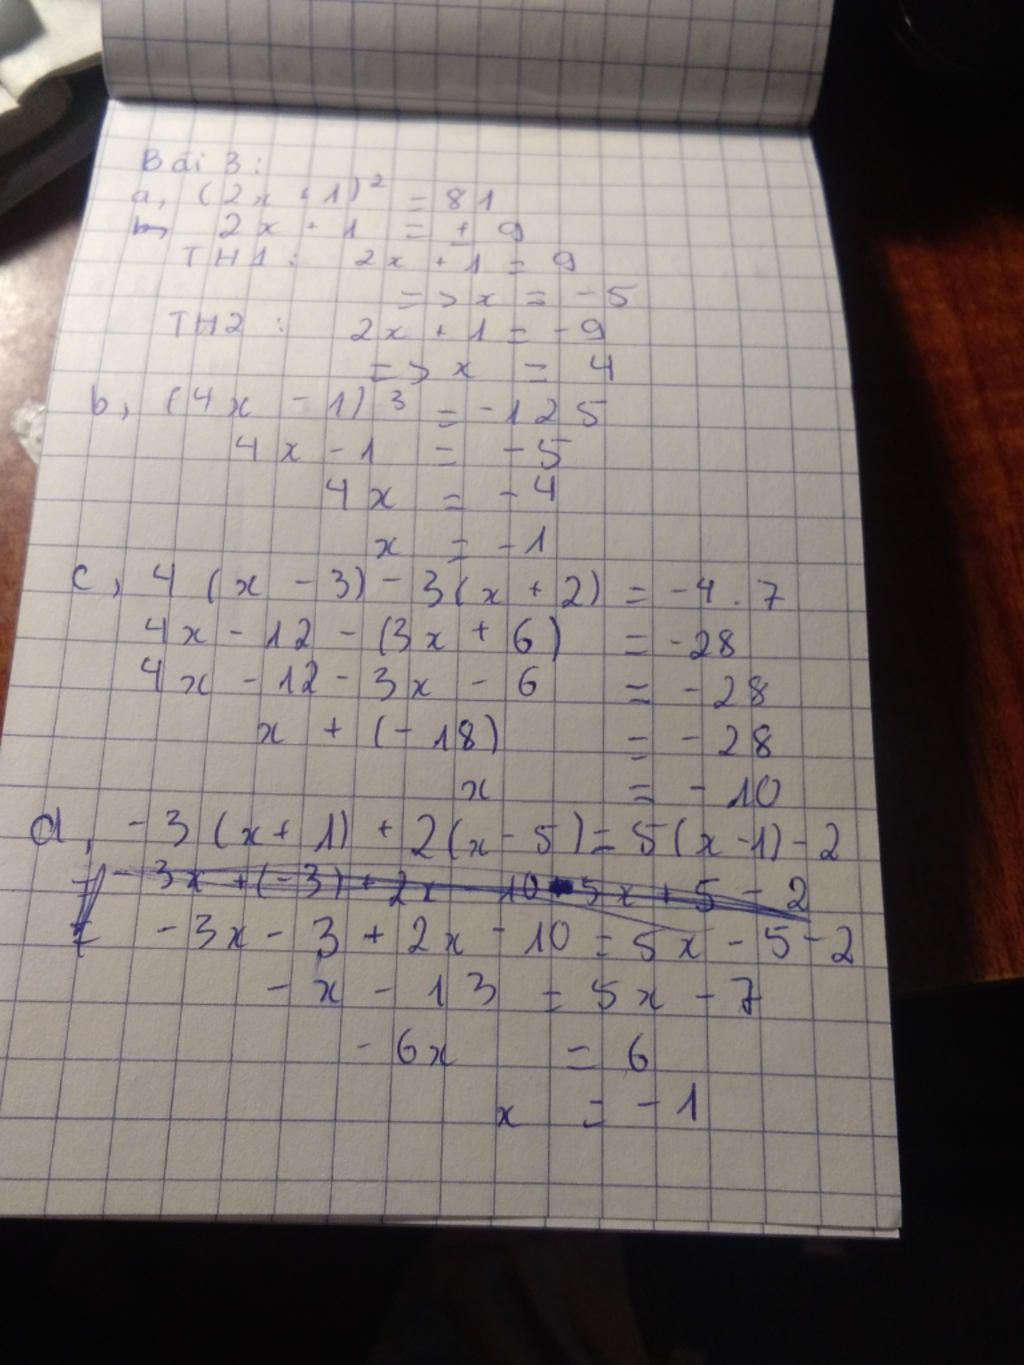 Bài 3:
a, (2x + 1)² = 81
2x + 1 = ± 9
TH1: 2x + 1 = 9
=> x = -5
TH2: 2x + 1 = -9
=> x = 4
b, (4x - 1)³ = -125
4x - 1 = -5
4x = -4
x = -1
c, 4(x - 3) - 3(x + 2) = -4.7
4x - 12 - (3x + 6) = -28
4x - 12 - 3x - 6 = -28
x + (-18) = -28
x = -10
d, -3(x + 1) + 2(x - 5) = 5(x - 1) - 2
-3x + (-3) + 2x 10 5x + 5 - 2
-3x - 3 + 2x - 10 = 5x - 5 - 2
-x - 13 = 5x - 7
-6x = 6
x = -1